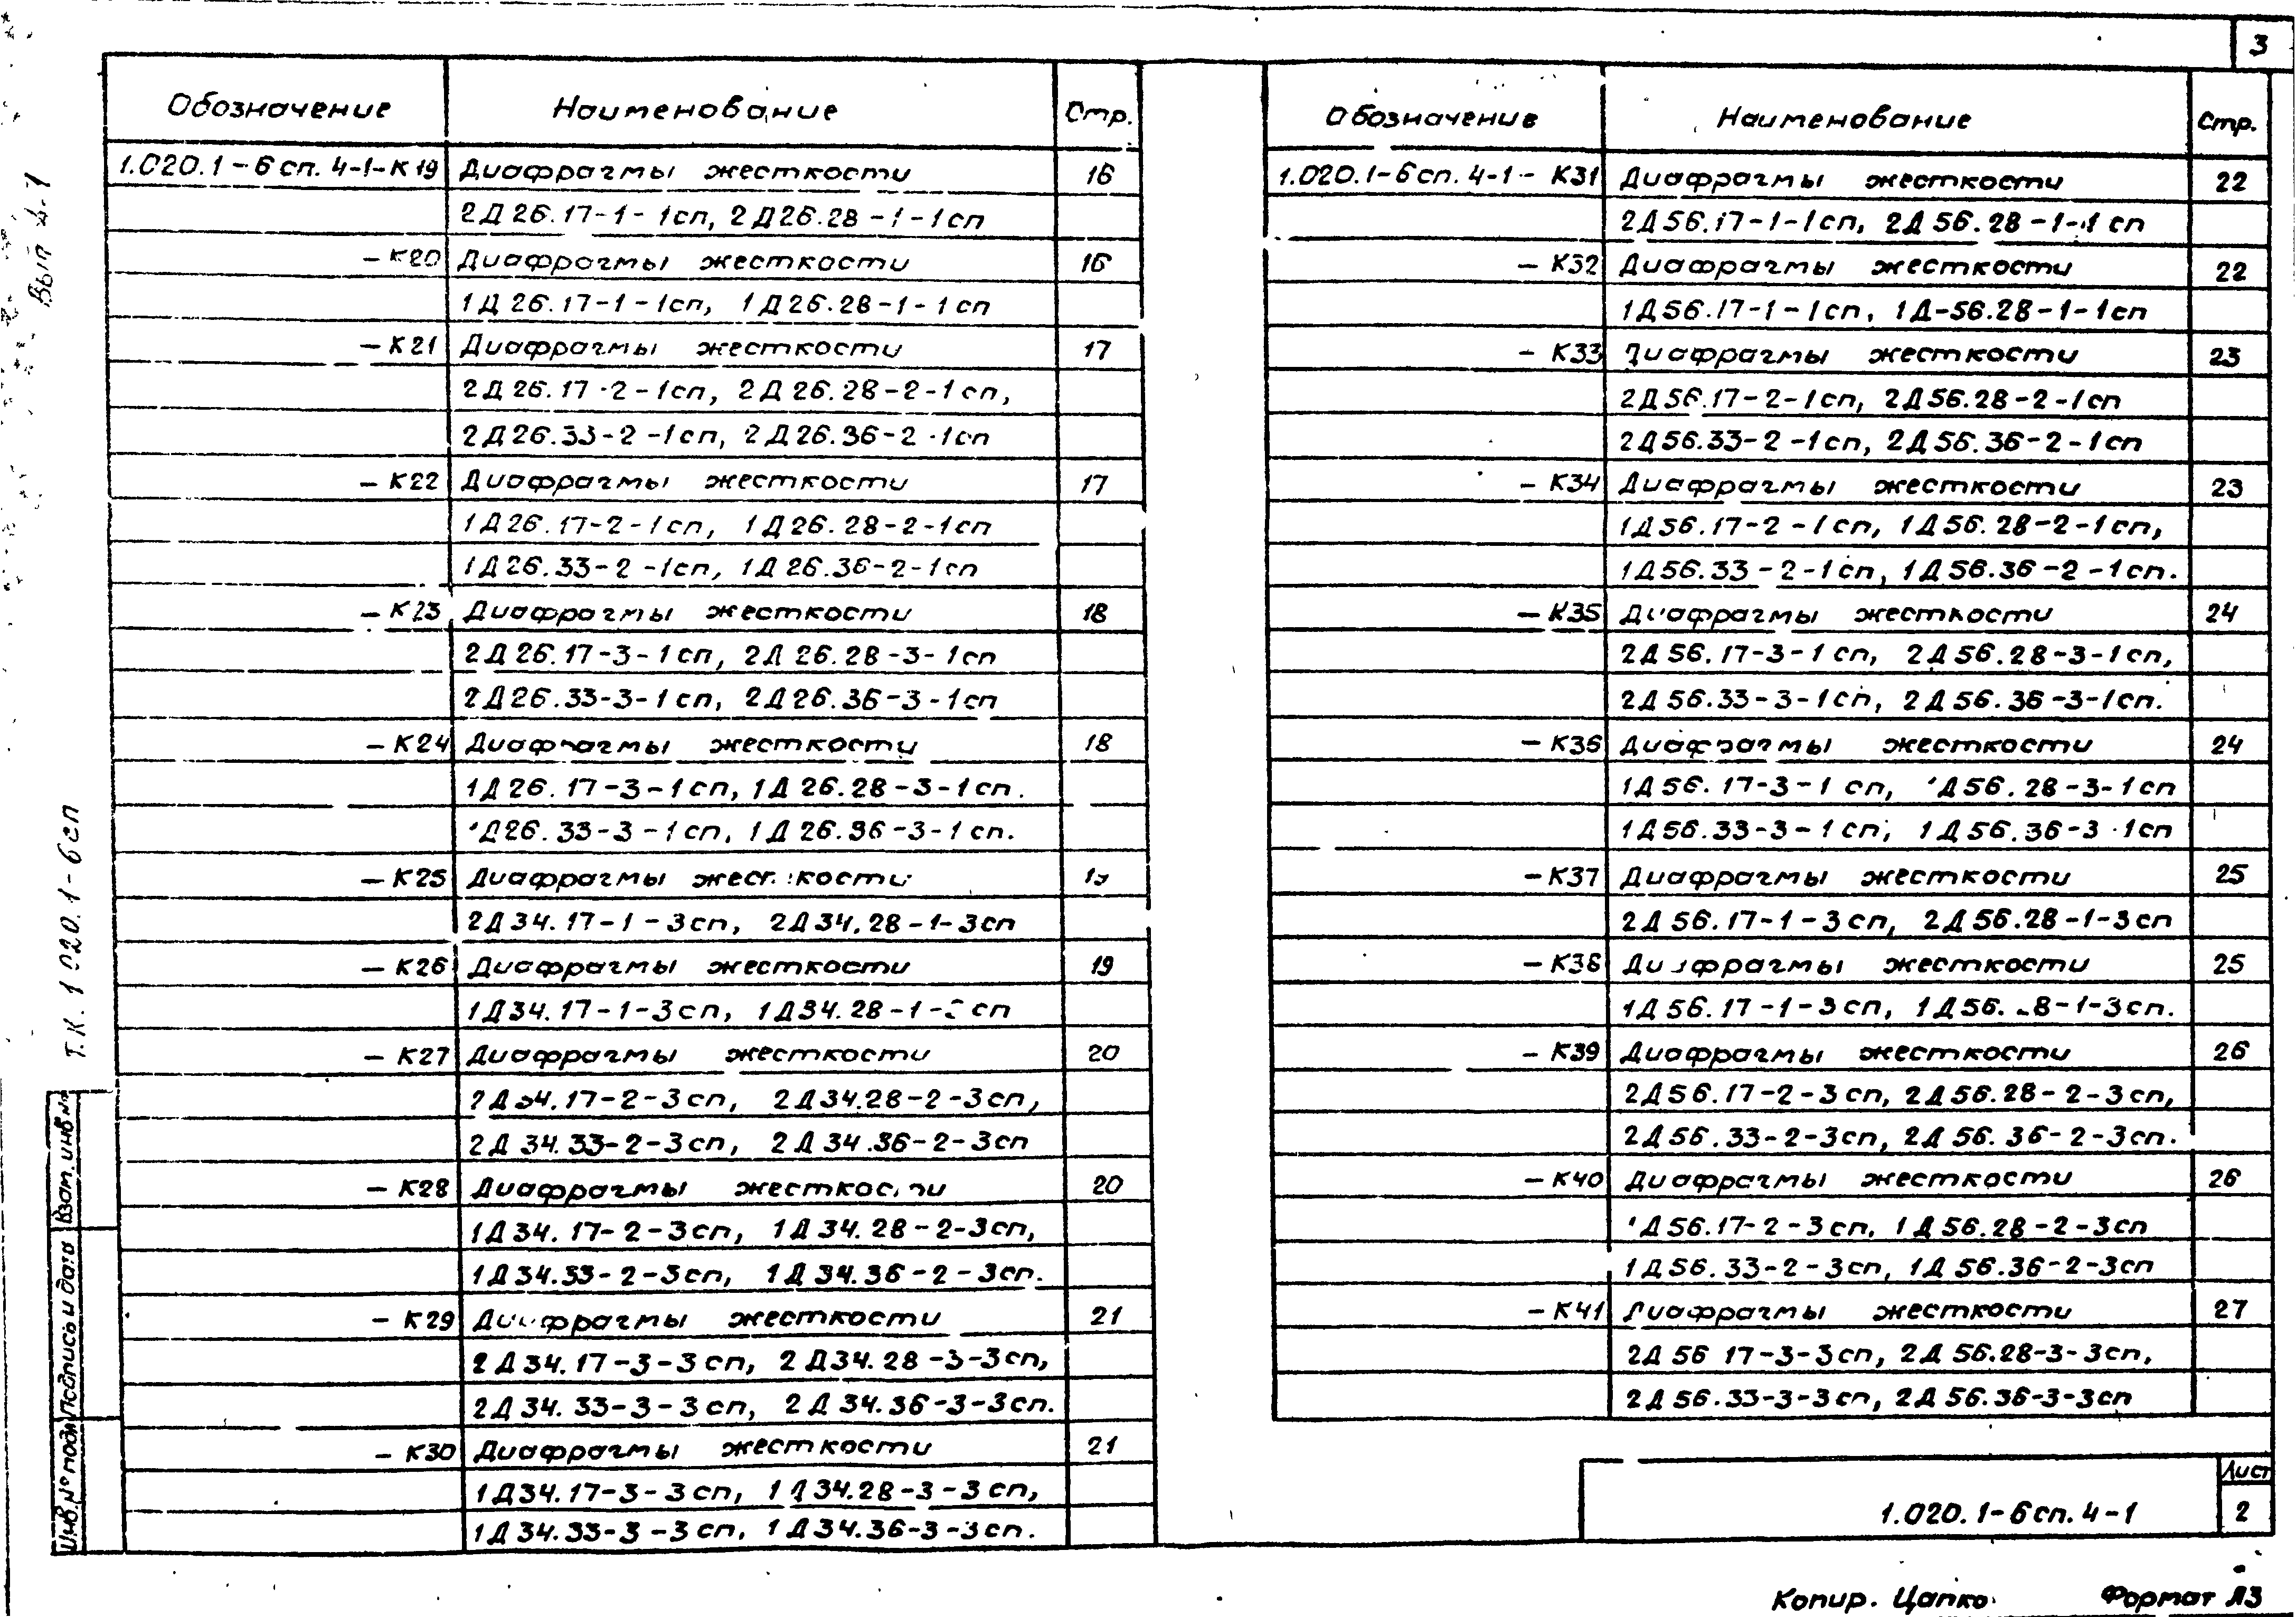 3
Обозначение Наименование Стр.
1.020.1-6сп. 4-1-К19 Диафрагмы жесткости 16
2Д26.17-1-1сп, 2Д26.28-1-1сп
-К20 Диафрагмы жесткости 16
1Д26.17-1-1сп, 1Д26.28-1-1сп
-К21 Диафрагмы жесткости 17
2Д26.17-2-1сп, 2Д26.28-2-1сп,
2Д26.33-2-1сп, 2Д26.36-2-1сп
-К22 Диафрагмы жесткости 17
1Д26.17-2-1сп, 1Д26.28-2-1сп
1Д26.33-2-1сп, 1Д26.36-2-1сп
-К23 Диафрагмы жесткости 18
2Д26.17-3-1сп, 2Д26.28-3-1сп
2Д26.33-3-1сп, 2Д26.36-3-1сп
-К24 Диафрагмы жесткости 18
1Д26.17-3-1сп, 1Д26.28-3-1сп.
1Д26.33-3-1сп, 1Д26.36-3-1сп.
-К25 Диафрагмы жесткости 19
2Д34.17-1-3сп, 2Д34.28-1-3сп
-К26 Диафрагмы жесткости 19
1Д34.17-1-3сп, 1Д34.28-1-3сп
-К27 Диафрагмы жесткости 20
2Д34.17-2-3сп, 2Д34.28-2-3сп,
2Д34.33-2-3сп, 2Д34.36-2-3сп
-К28 Диафрагмы жесткости 20
1Д34.17-2-3сп, 1Д34.28-2-3сп,
1Д34.33-2-3сп, 1Д34.36-2-3сп.
-К29 Диафрагмы жесткости 21
2Д34.17-3-3сп, 2Д34.28-3-3сп,
2Д34.33-3-3сп, 2Д34.36-3-3сп.
-К30 Диафрагмы жесткости 21
1Д34.17-3-3сп, 1Д34.28-3-3сп,
1Д34.33-3-3сп, 1Д34.36-3-3сп.
Обозначение Наименование Стр.
1.020.1-6сп. 4-1-К31 Диафрагмы жесткости 22
2Д56.17-1-1сп, 2Д56.28-1-1сп
-К32 Диафрагмы жесткости 22
1Д56.17-1-1сп, 1Д-56.28-1-1сп
-К33 Диафрагмы жесткости 23
2Д56.17-2-1сп, 2Д56.28-2-1сп
2Д56.33-2-1сп, 2Д56.36-2-1сп
-К34 Диафрагмы жесткости 23
1Д56.17-2-1сп, 1Д56.28-2-1сп,
1Д56.33-2-1сп, 1Д56.36-2-1сп.
-К35 Диафрагмы жесткости 24
2Д56.17-3-1сп, 2Д56.28-3-1сп,
2Д56.33-3-1сп, 2Д56.36-3-1сп.
-К36 Диафрагмы жесткости 24
1Д56.17-3-1сп, 1Д56.28-3-1сп
1Д56.33-3-1сп, 1Д56.36-3-1сп
-К37 Диафрагмы жесткости 25
2Д56.17-1-3сп, 2Д56.28-1-3сп
-К38 Диафрагмы жесткости 25
1Д56.17-1-3сп, 1Д56.28-1-3сп.
-К39 Диафрагмы жесткости 26
2Д56.17-2-3сп, 2Д56.28-2-3сп,
2Д56.33-2-3сп, 2Д56.36-2-3сп.
-К40 Диафрагмы жесткости 26
1Д56.17-2-3сп, 1Д56.28-2-3сп
1Д56.33-2-3сп, 1Д56.36-2-3сп
-К41 Диафрагмы жесткости 27
2Д56 17-3-3сп, 2Д56.28-3-3сп,
2Д56.33-3-3сп, 2Д56.36-3-3сп
1.020.1-6сп.4-1
Лист
2
Копир. Цапко
Формат А3
Т.К. 1.020.1-6сп
Вып 4-1
Взам. инв №
Подпись и дата
Инв. № подл